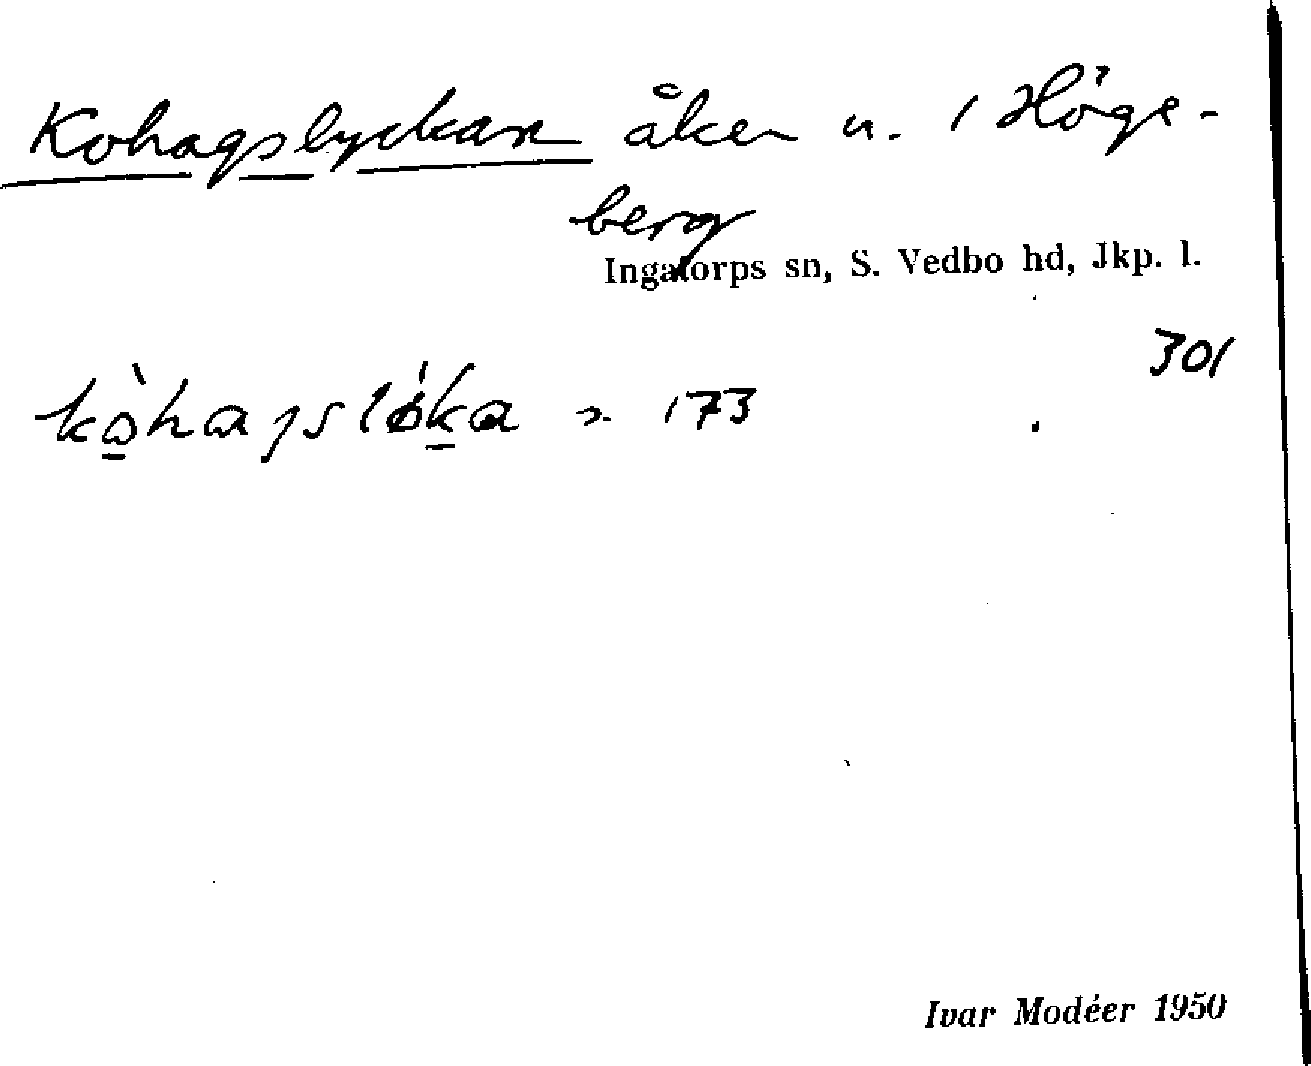 Kohagslyckan åker u. / Höge-
berg
Ingatorps sn, S. Vedbo hd, Jkp. l.
301
kòhagslǿka 2. 173
Ivar Modéer 1950